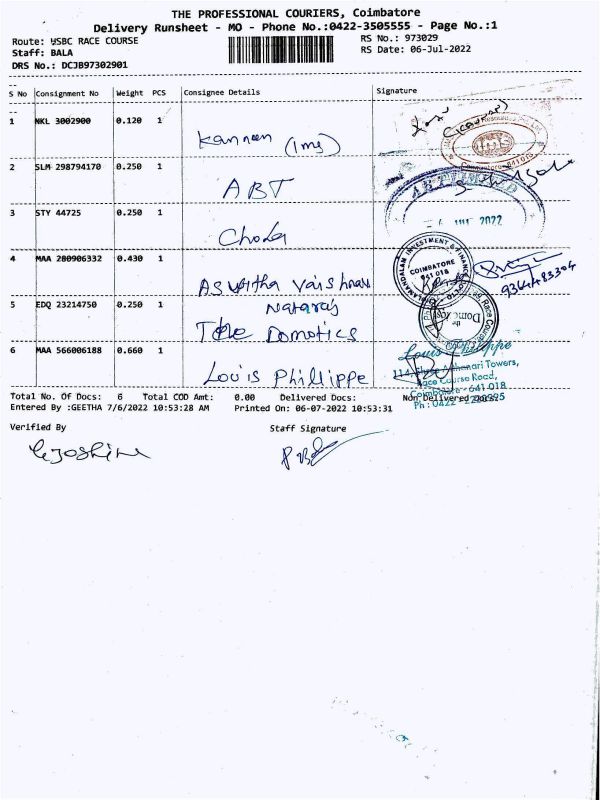 THE PROFESSIONAL COURIERS, Coimbatore
Delivery Runsheet - MO - Phone No.:0422-3505555 - Page No.:1
Route: HSBC RACE COURSE
RS No.: 973029
Staff: BALA
RS Date: 06-Jul-2022
DRS No.: DCJB97302901
S No Consignment No Weight PCS Consignee Details Signature
1 NKL 3002900 0.120 1
Kannan (Ims)
(Kannan)
Coimbatore - 641 018
2 SLM 298794170 0.250 1
ABT
ABT LIMITED
3 STY 44725 0.250 1
Chola
6 JUL 2022
4 MAA 280906332 0.430 1
Aswitha Vaishnavi
Nataraj
INVESTMENT & FINANCE
COIMBATORE
641 018
5 EDQ 23214750 0.250 1
The Domotics
the
6 MAA 566006188 0.660 1
Louis Phillippe
Louis Philippe
Towers,
Race Course Road,
Coimbatore - 641 018
Total No. Of Docs: 6 Total COD Amt: 0.00 Delivered Docs: Non Delivered Docs:
Entered By :GEETHA 7/6/2022 10:53:28 AM Printed On: 06-07-2022 10:53:31
Verified By Staff Signature